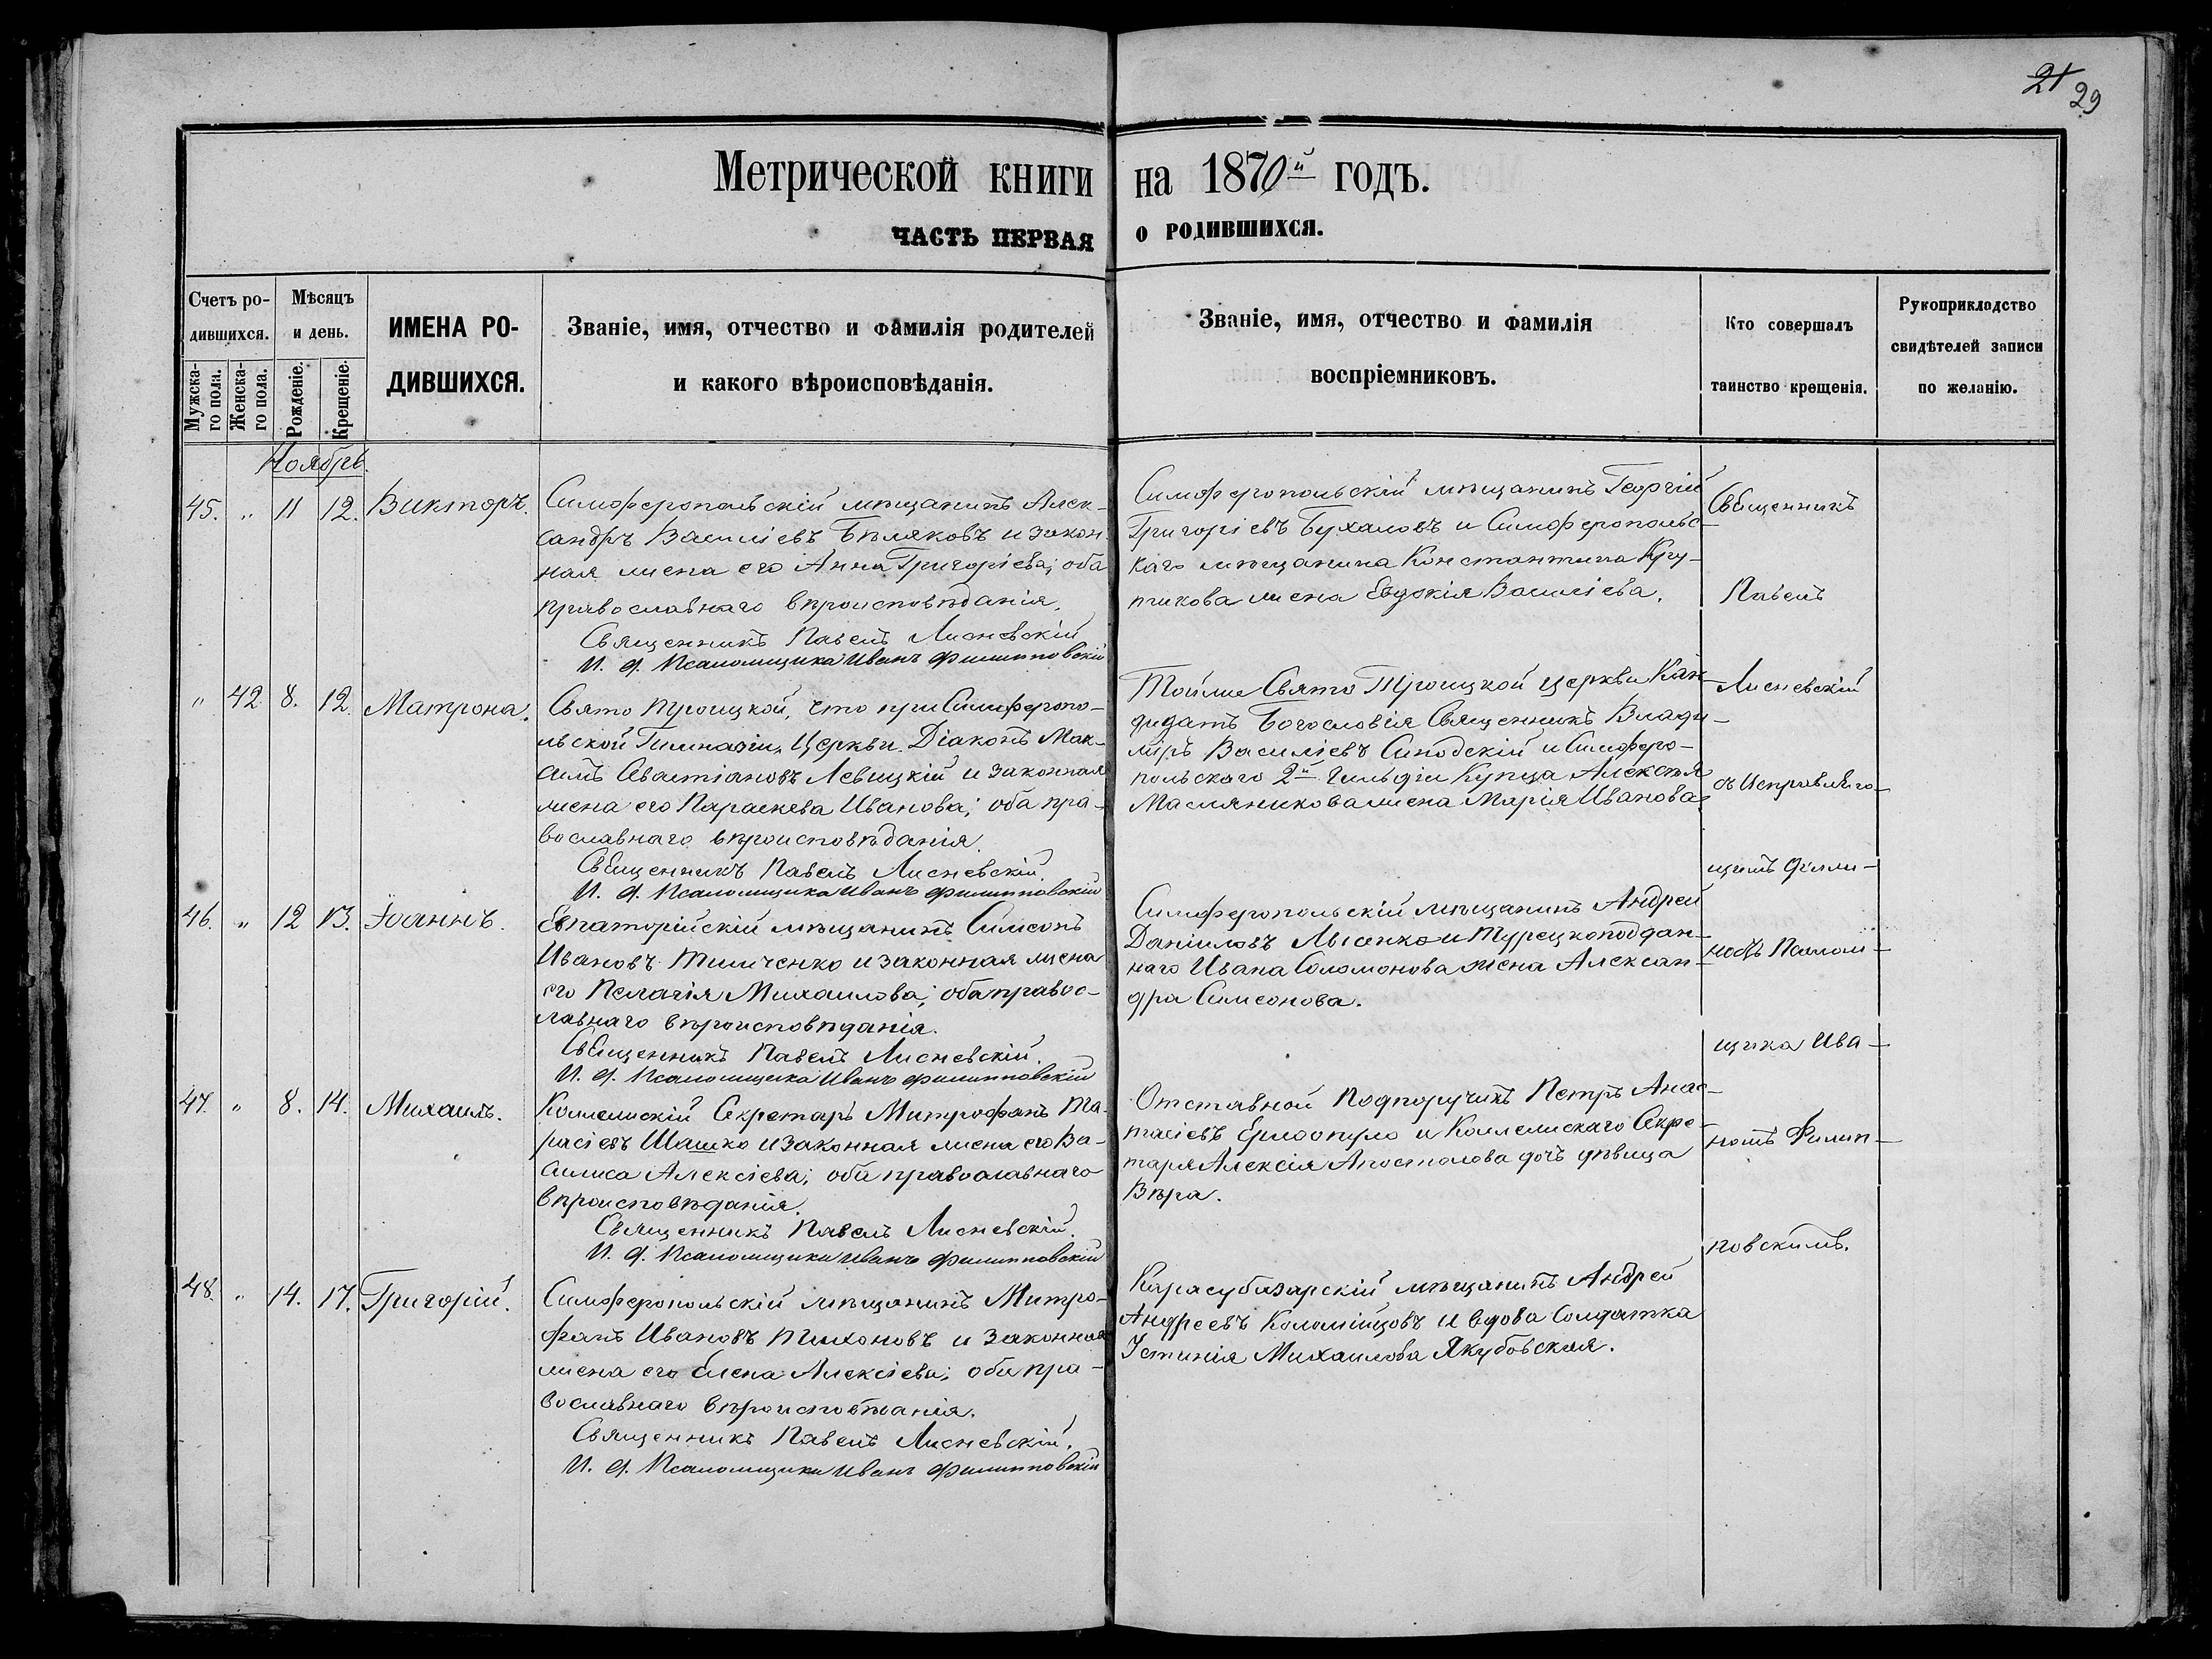 21 29
Метрической книги на 1870й годъ.
ЧАСТЬ ПЕРВАЯ О РОДИВШИХСЯ.
Счетъ ро-
дившихся.
Мужска-
го пола.
Женска-
го пола.
Мѣсяцъ
и день.
Рожденіе.
Крещеніе.
ИМЕНА РО-
ДИВШИХСЯ.
Званіе, имя, отчество и фамилія родителей
и какого вѣроисповѣданія.
Званіе, имя, отчество и фамилія
воспріемниковъ.
Кто совершалъ
таинство крещенія.
Рукоприкладство
свидѣтелей записи
по желанію.
Ноябрь.
45. " 11 12. Викторъ.
Симферопольскій мѣщанинъ Алек-
сандръ Василіевъ Бѣляковъ и закон-
ная жена его Анна Григоріева; оба
православнаго вѣроисповѣданія.
Священникъ Павелъ Лисневскій
И. д. Псаломщика Иванъ Филипповскій
Симферопольскій мѣщанинъ Георгій
Григоріевъ Бухаловъ и Симферопольс-
каго мѣщанина Константина Кру-
пикова жена Евдокія Василіева.
" 42 8. 12. Матрона.
Свято Троицкой, что при Симферопо-
льской Гимназіи, Церкви Діаконъ Мак-
симъ Севастіановъ Левицкій и законная
жена его Параскева Иванова; оба пра-
вославнаго вѣроисповѣданія.
Священникъ Павелъ Лисневскій.
И. д. Псаломщика Иванъ Филипповскій
Тойже Свято Троицкой церкви Кан-
дидатъ Богословія Священникъ Влади-
міръ Василіевъ Синодскій и Симферо-
польскаго 2й гильдіи Купца Алексѣя
Масляникова жена Марія Иванова.
46. " 12 13. Іоаннъ.
Евпаторійскій мѣщанинъ Симеонъ
Ивановъ Тимченко и законная жена
его Пелагія Михаилова; оба правос-
лавнаго вѣроисповѣданія.
Священникъ Павелъ Лисневскій.
И. д. Псаломщика Иванъ Филипповскій
Симферопольскій мѣщанинъ Андрей
Даніиловъ Лысенко и Турецкоподдан-
наго Ивана Соломонова жена Алексан-
дра Симеонова.
47. " 8. 14. Михаилъ.
Коллежскій Секретарь Митрофанъ Та-
расіевъ Шашко и законная жена его Ва-
силиса Алексіева; оба православнаго
вѣроисповѣданія.
Священникъ Павелъ Лисневскій.
И. д. Псаломщика Иванъ Филипповскій
Отставной Подпоручикъ Петръ Анас-
тасіевъ Ермопуло и Коллежскаго Секре-
таря Алексія Апостолова дочь дѣвица
Вѣра.
48. " 14. 17. Григорій.
Симферопольскій мѣщанинъ Митро-
фанъ Ивановъ Тихоновъ и законная
жена его Елена Алексіева; оба пра-
вославнаго вѣроисповѣданія.
Священникъ Павелъ Лисневскій.
И. д. Псаломщика Иванъ Филипповскій
Карасубазарскій мѣщанинъ Андрей
Андреевъ Коломійцовъ и вдова Солдатка
Устинія Михаилова Якубовская.
Священникъ
Павелъ
Лисневскій
съ Исправляю-
щимъ должн-
ность Псалом-
щика Ива-
номъ Филип-
повскимъ.